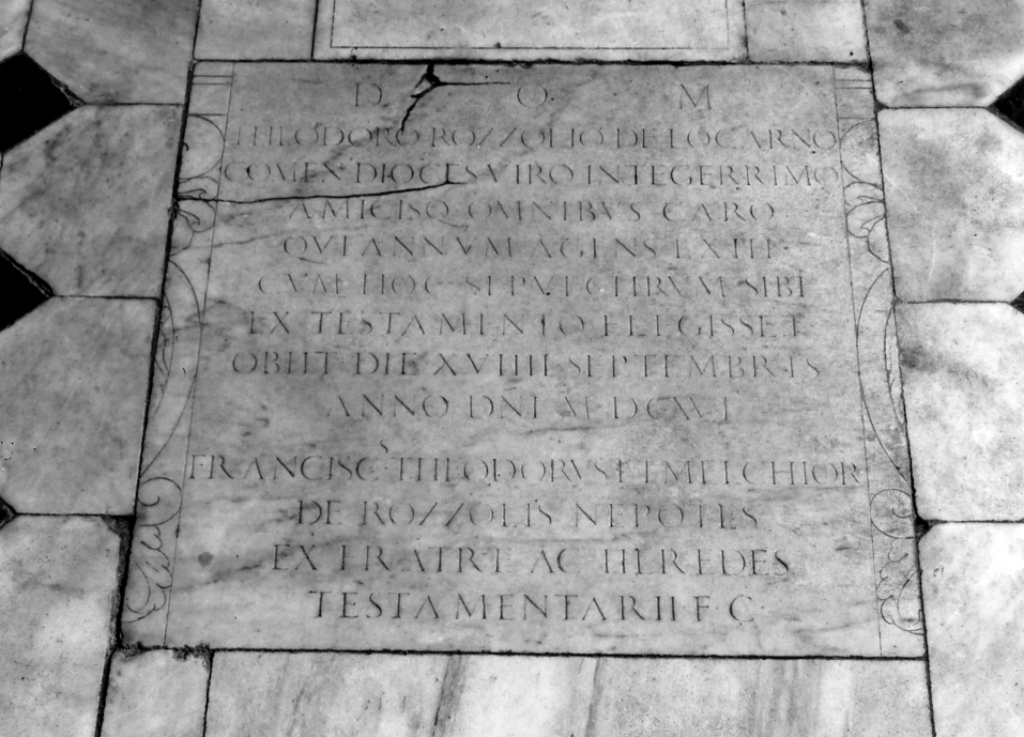 D O M
THEODORO ROZZOLIO DE LOCARNO
COMEN DIOCES VIRO INTEGERRIMO
AMICISQ OMNIBVS CARO
QVI ANNVM AGENS LXIII
CVM HOC SEPVLCHRVM SIBI
EX TESTAMENTO ELEGISSET
OBIIT DIE XVIIII SEPTEMBRIS
ANNO DNI
FRANCISC S THEODORVS ET MELCHIOR
DE ROZZOLIS NEPOTES
EX FRATRE AC HEREDES
TESTAMENTARII F C